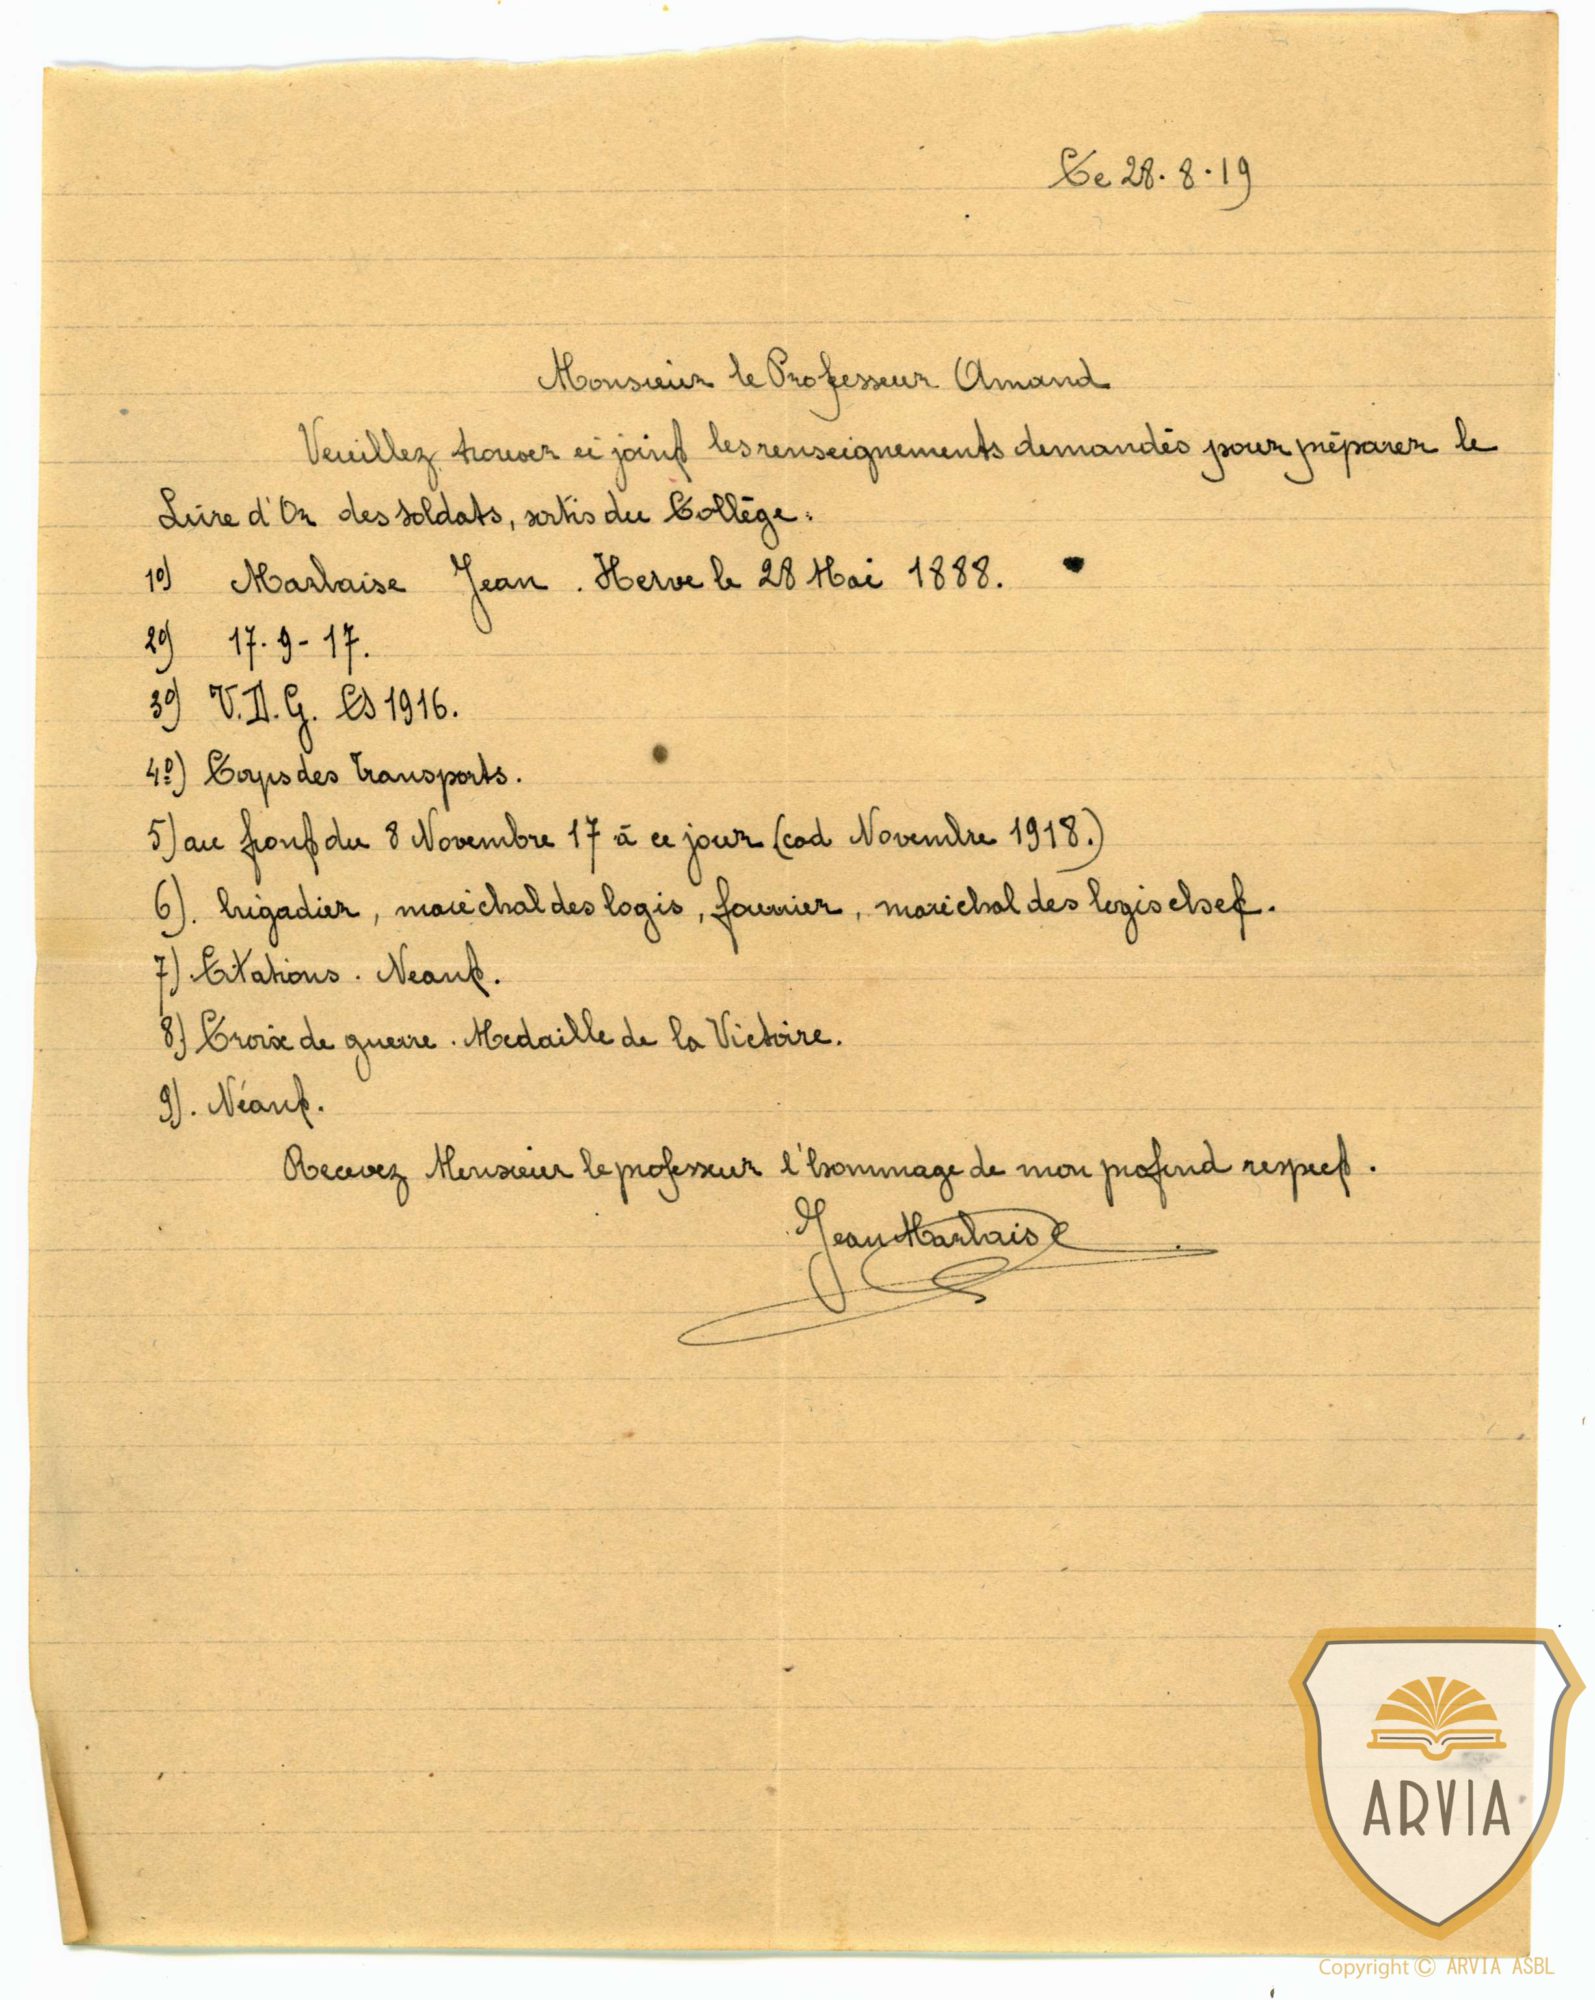 Le 28. 8. 19
Monsieur le Professeur Amand
Veuillez trouver ci joint les renseignements demandés pour préparer le
Livre d'Or des soldats, sortis du Collège:
1º) Marlaise Jean. Herve le 28 Mai 1888.
2º) 17. 9 - 17.
3º) V.D.G. 1916.
4º) Corps des Transports.
5) au front du 8 Novembre 17 à ce jour (cad Novembre 1918.)
6). brigadier, maréchal des logis, fourrier, maréchal des logis chef.
7). Citations. Neant.
8) Croix de guerre. Medaille de la Victoire.
9). Néant.
Recevez Monsieur le professeur l'hommage de mon profond respect.
Jean Marlaise
ARVIA
Copyright © ARVIA ASBL